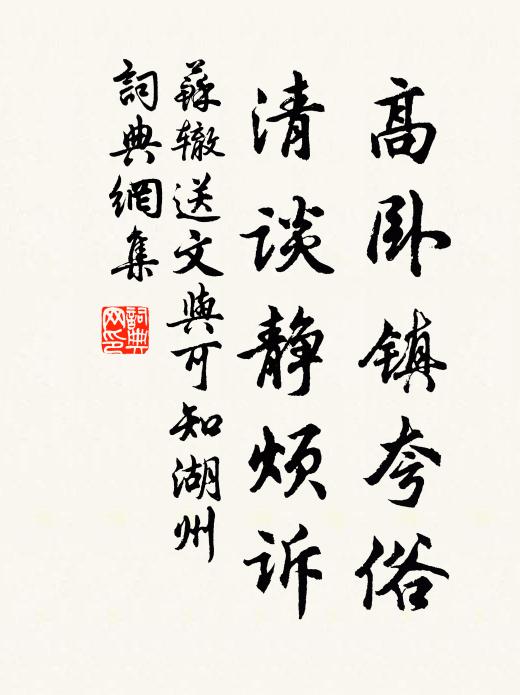 高卧镇夸俗
清談静烦诉
蘇辙送文與可知湖州
詞典網集
詞典网印